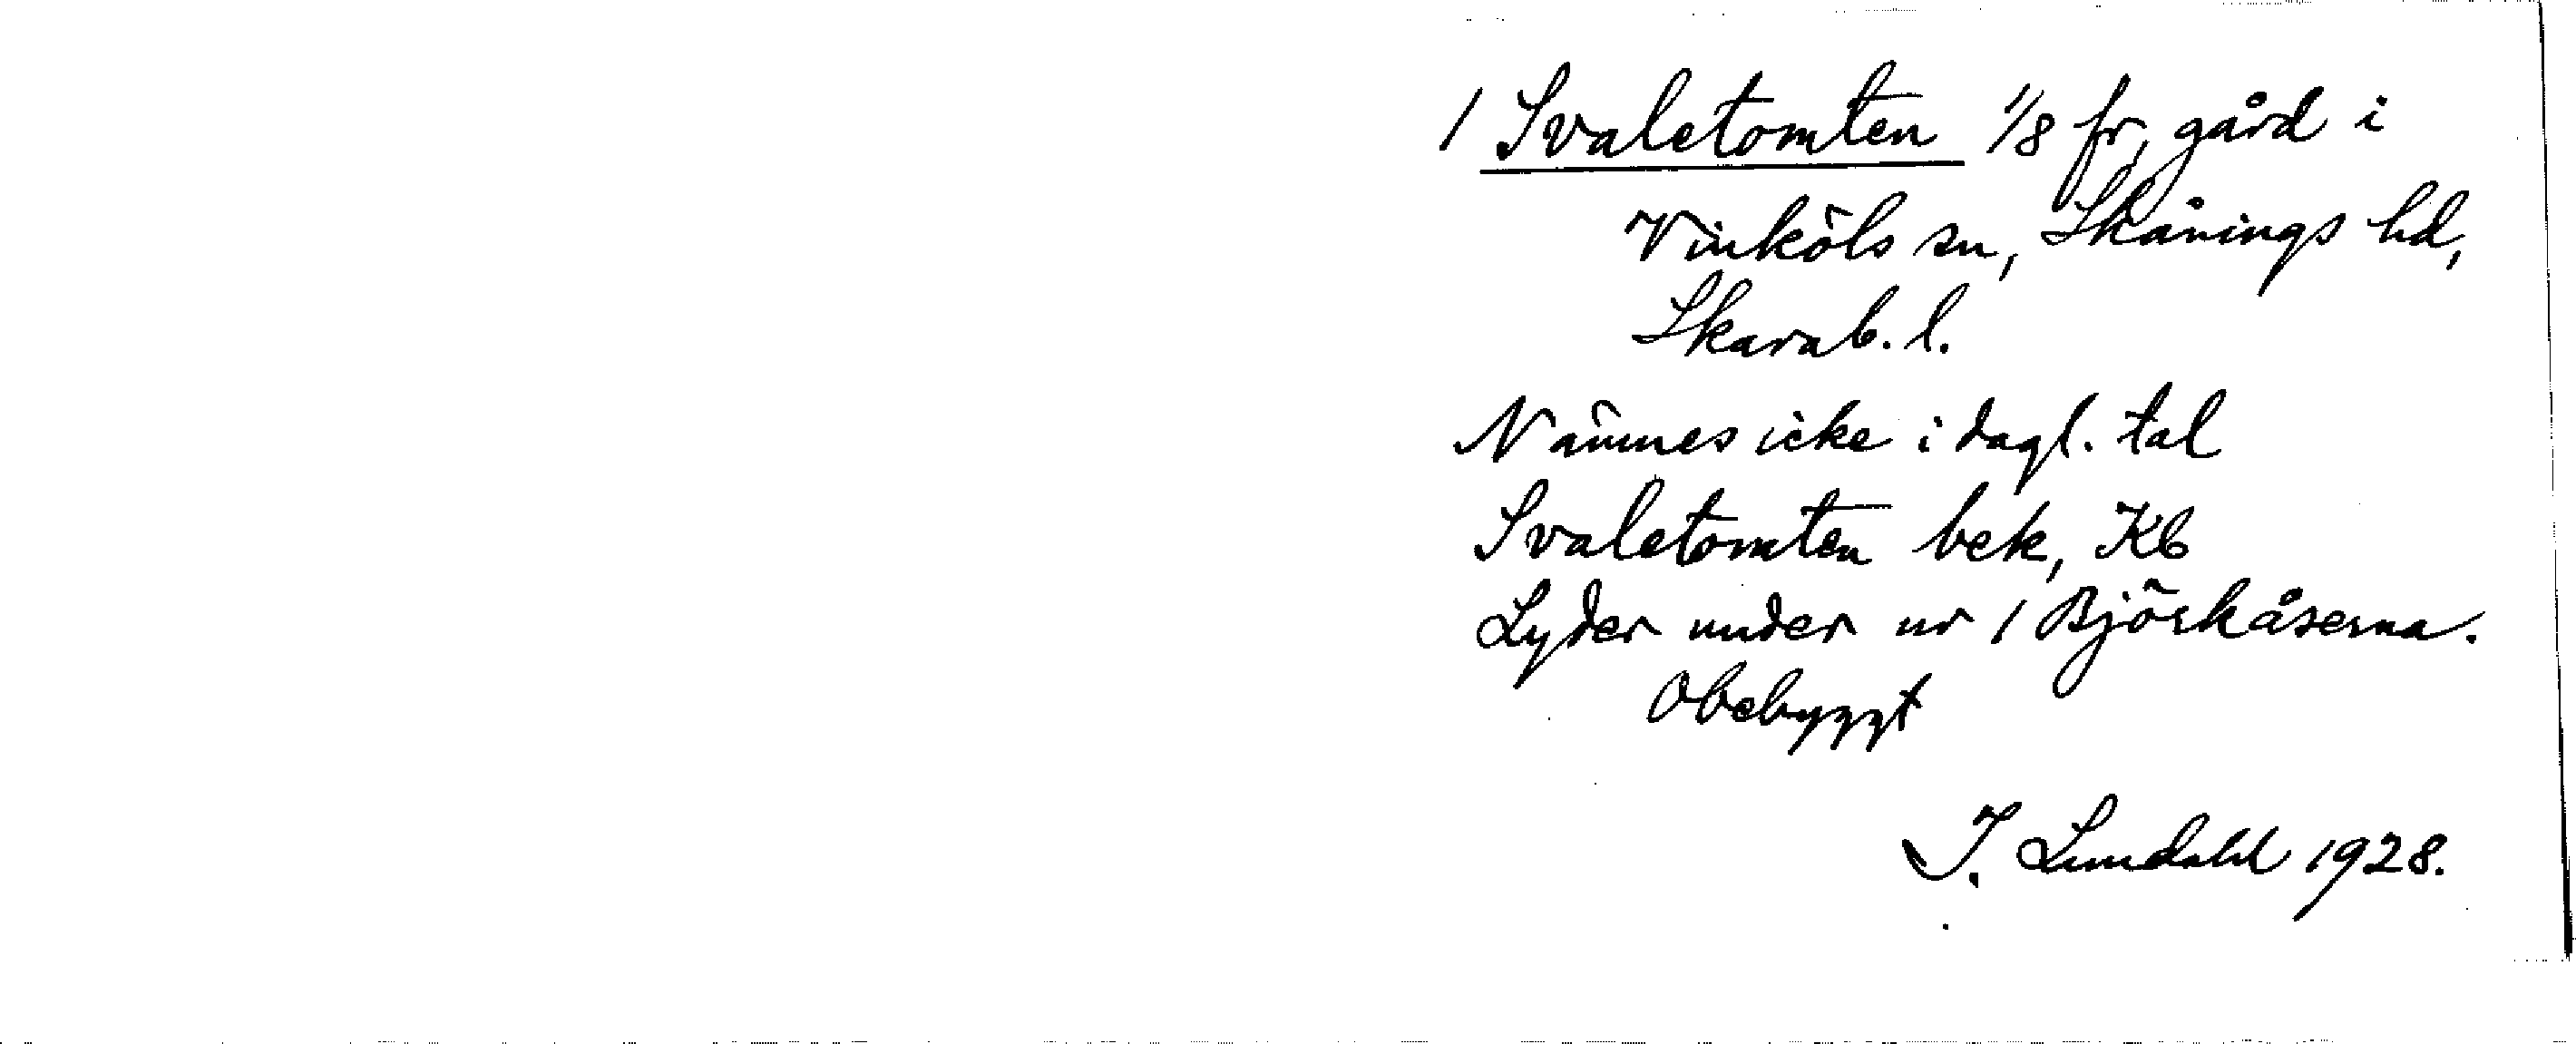 1 Svaletomten 1/8 fr, gård i
Vinköls sn, Skånings hd,
Skarab. l.
Nämnes icke i dagl. tal
Svaletomten bek, Kb
Lyder under nr 1 Björkåserna.
Obebyggt
I. Lundahl 1928.